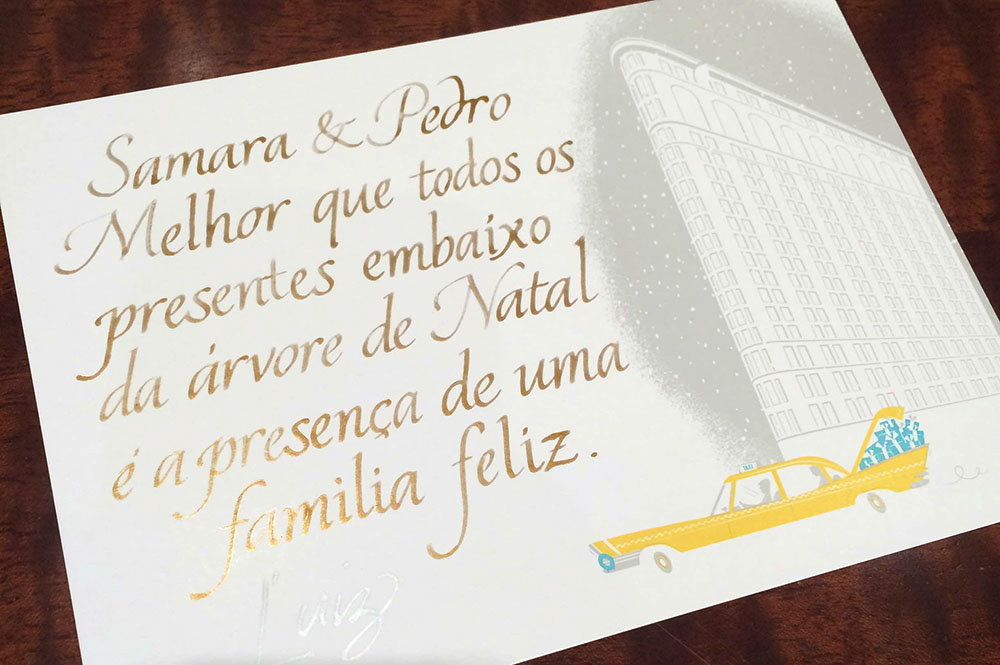 Samara & Pedro
Melhor que todos os
presentes embaixo
da árvore de Natal
é a presença de uma
familia feliz.
Luiz
TAXI